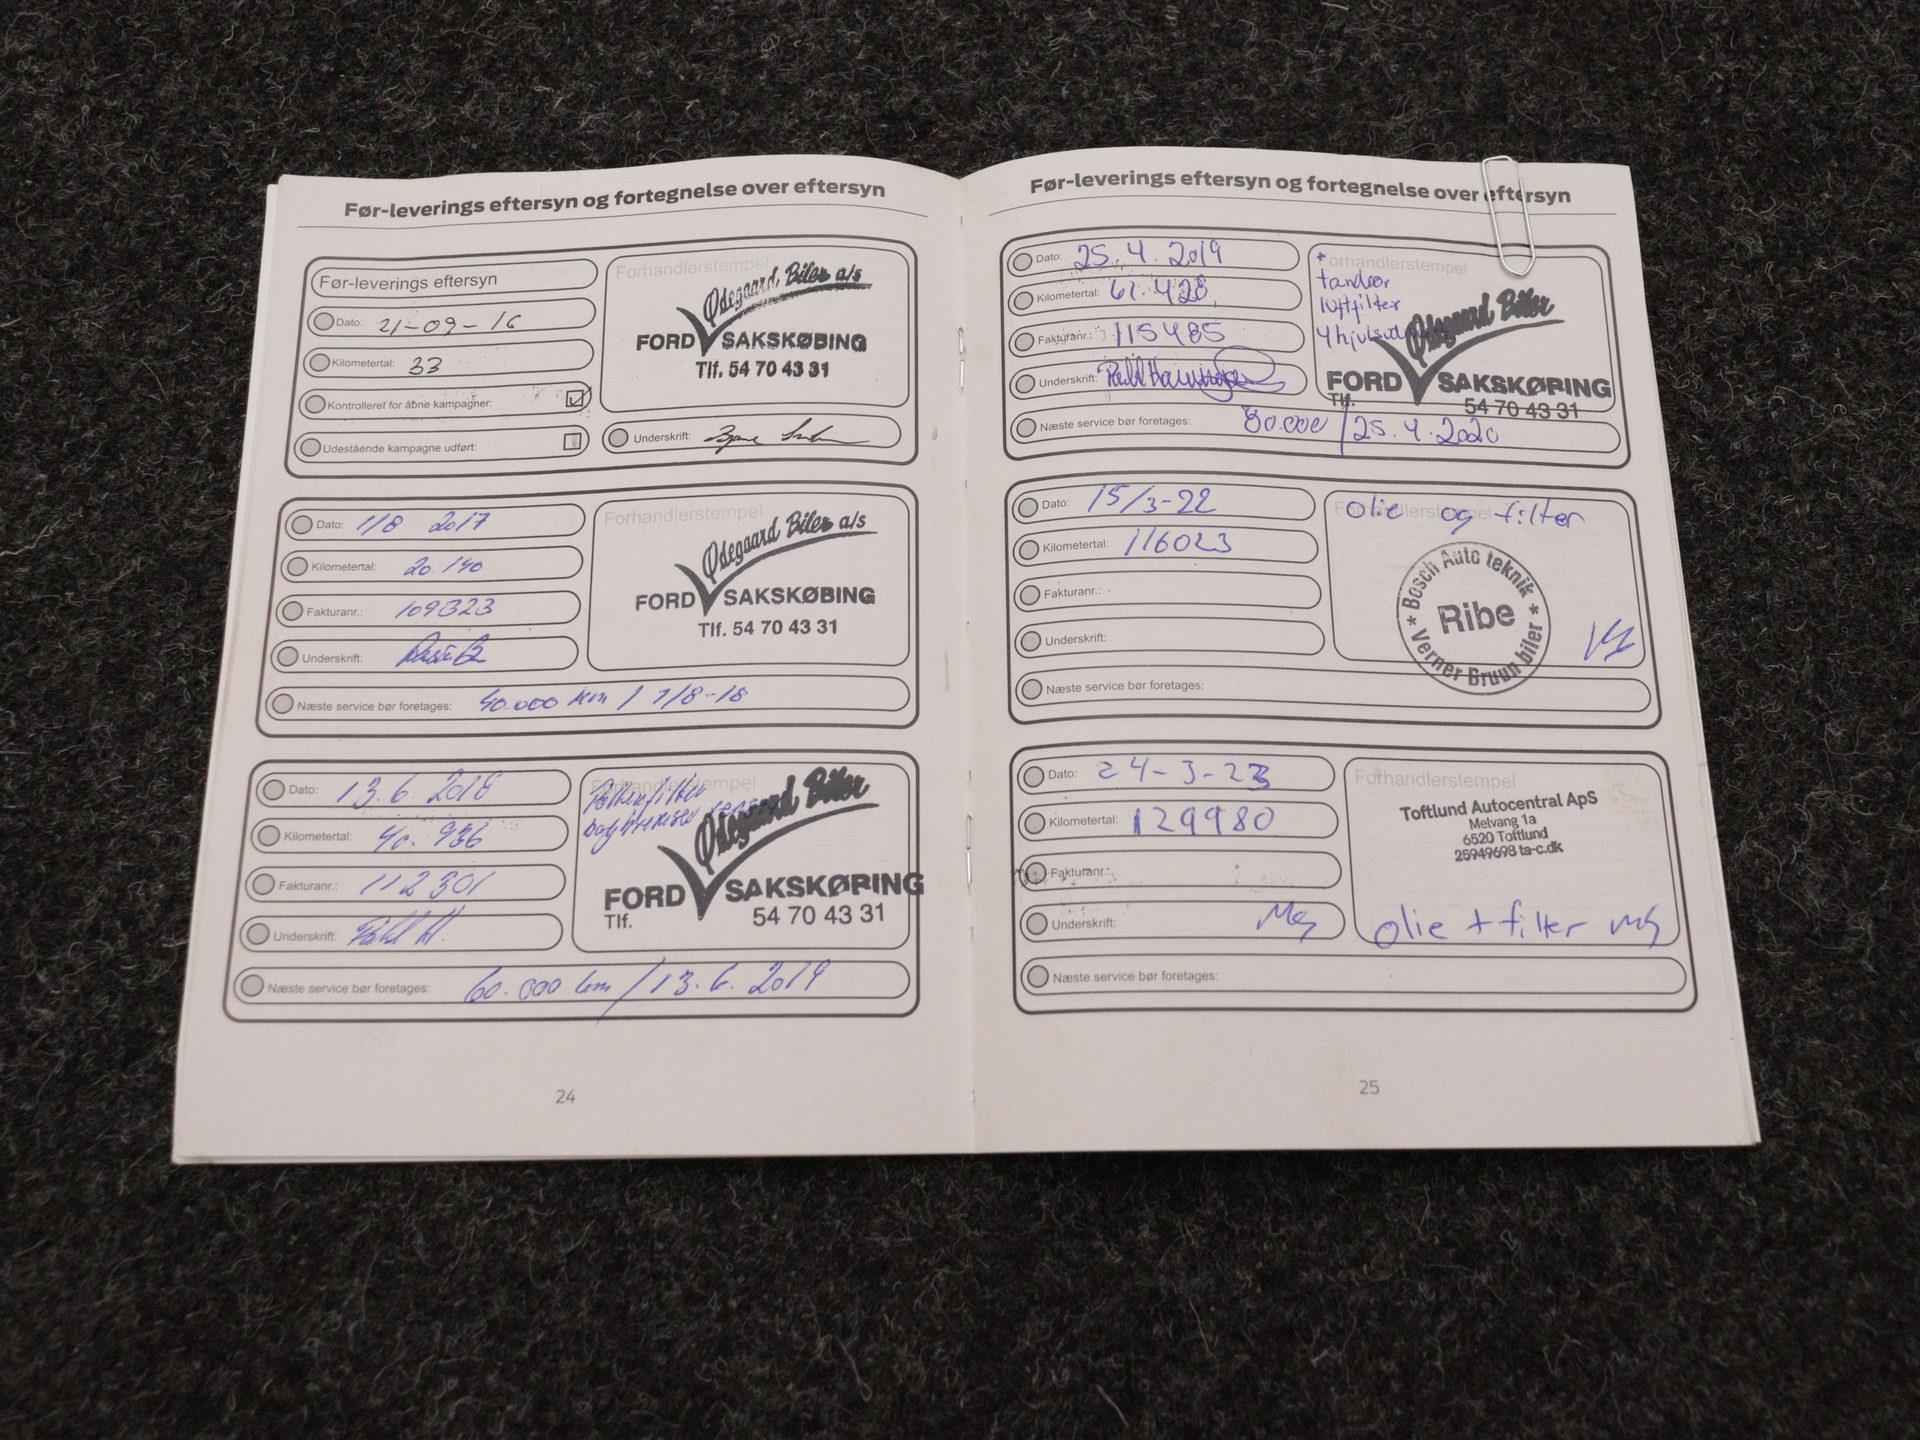 Før-leverings eftersyn og fortegnelse over eftersyn
Før-leverings eftersyn
Dato: 21-09-16
Kilometertal: 33
Kontrolleret for åbne kampagner:
Udestående kampagne udført:
Forhandlerstempel
Ødegaard Biler a/s
FORD SAKSKØBING
Tlf. 54 70 43 31
Underskrift:
Dato: 1/8 2017
Kilometertal: 20.140
Fakturanr.: 109323
Underskrift:
Forhandlerstempel
Ødegaard Biler a/s
FORD SAKSKØBING
Tlf. 54 70 43 31
Næste service bør foretages: 40.000 km / 1/8-18
Dato: 13.6.2018
Kilometertal: 40.936
Fakturanr.: 112301
Underskrift:
Forhandlerstempel
Pollenfilter
Ødegaard Biler
FORD SAKSKØBING
Tlf. 54 70 43 31
Næste service bør foretages: 60.000 km / 13.6.2019
24
Før-leverings eftersyn og fortegnelse over eftersyn
Dato: 25.4.2019
Kilometertal: 61.428
Fakturanr.: 115485
Underskrift:
Forhandlerstempel
tændrør
luftfilter
Ødegaard Biler
FORD SAKSKØBING
Tlf. 54 70 43 31
Næste service bør foretages: 80.000 / 25.4.2020
Dato: 15/3-22
Kilometertal: 116023
Fakturanr.:
Underskrift:
Forhandlerstempel
olie og filter
* Bosch Auto teknik *
Ribe
Verner Bruun biler
Næste service bør foretages:
Dato: 24-3-23
Kilometertal: 129980
Fakturanr.:
Underskrift:
Forhandlerstempel
Toftlund Autocentral ApS
Melvang 1a
6520 Toftlund
25949698 ta-c.dk
olie + filter
Næste service bør foretages:
25